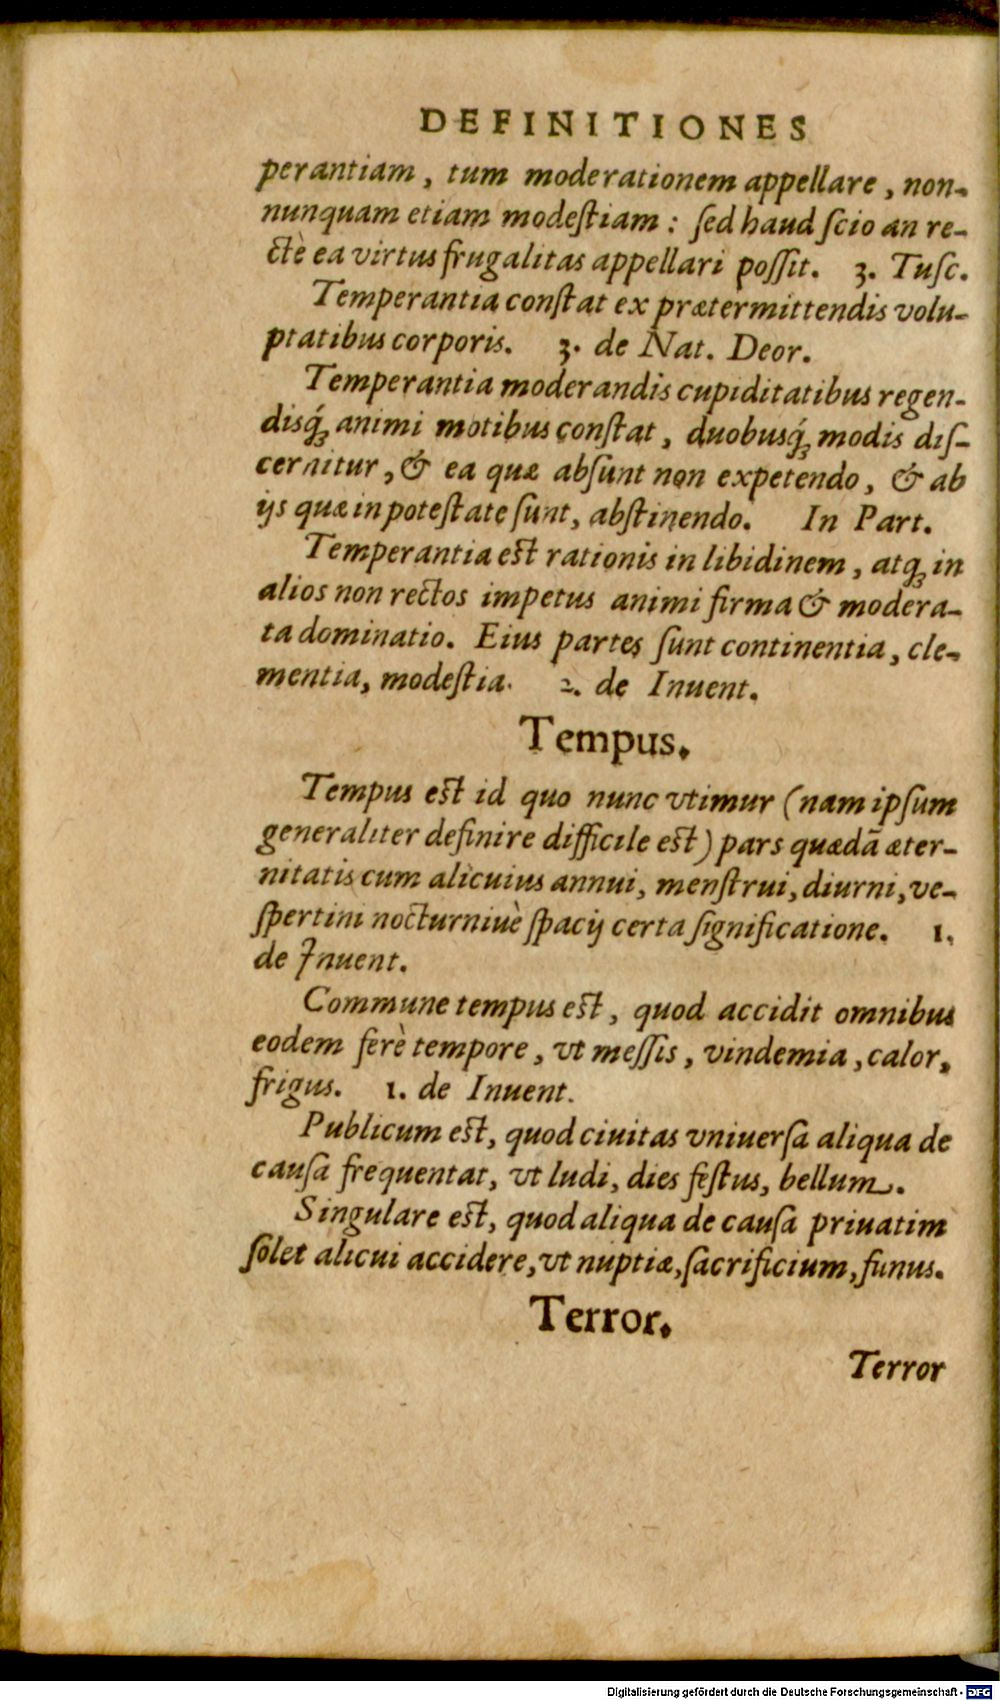 DEFINITIONES
perantiam, tum moderationem appellare, non-
nunquam etiam modeſtiam: ſed haud ſcio an re-
ctè ea virtus frugalitas appellari poſſit. 3. Tuſc.
Temperantia conſtat ex prætermittendis volu-
ptatibus corporis. 3. de Nat. Deor.
Temperantia moderandis cupiditatibus regen-
disq́ꝫ animi motibus conſtat, duobusq́ꝫ modis diſ-
cernitur, & ea quæ abſunt non expetendo, & ab
ijs quæ in poteſtate ſunt, abſtinendo. In Part.
Temperantia eſt rationis in libidinem, atqꝫ in
alios non rectos impetus animi firma & modera-
ta dominatio. Eius partes ſunt continentia, cle-
mentia, modeſtia. 2. de Inuent.
Tempus.
Tempus eſt id quo nunc vtimur (nam ipſum
generaliter definire difficile eſt) pars quædã æter-
nitatis cum alicuius annui, menſtrui, diurni, ve-
ſpertini nocturniuè ſpacij certa ſignificatione. 1.
de Inuent.
Commune tempus eſt, quod accidit omnibus
eodem ferè tempore, vt meſſis, vindemia, calor,
frigus. 1. de Inuent.
Publicum eſt, quod ciuitas vniuerſa aliqua de
cauſa frequentat, vt ludi, dies feſtus, bellum.
Singulare eſt, quod aliqua de cauſa priuatim
ſolet alicui accidere, vt nuptiæ, ſacrificium, funus.
Terror.
Terror
Digitalisierung gefördert durch die Deutsche Forschungsgemeinschaft - DFG